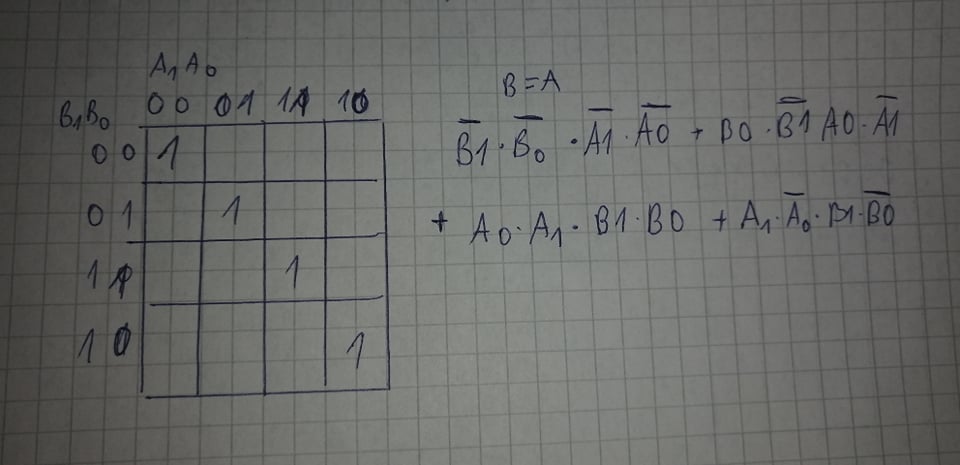 A₁A₀
B₁B₀ 00 01 11 10
00 1
01 1
11 1
10 1
B=A
B̅1̅·B̅₀̅·A̅1̅·A̅0̅ + B0·B̅1̅ A0·A̅1̅
+ A₀·A₁·B1·B0 + A₁·A̅₀·B1·B̅0̅